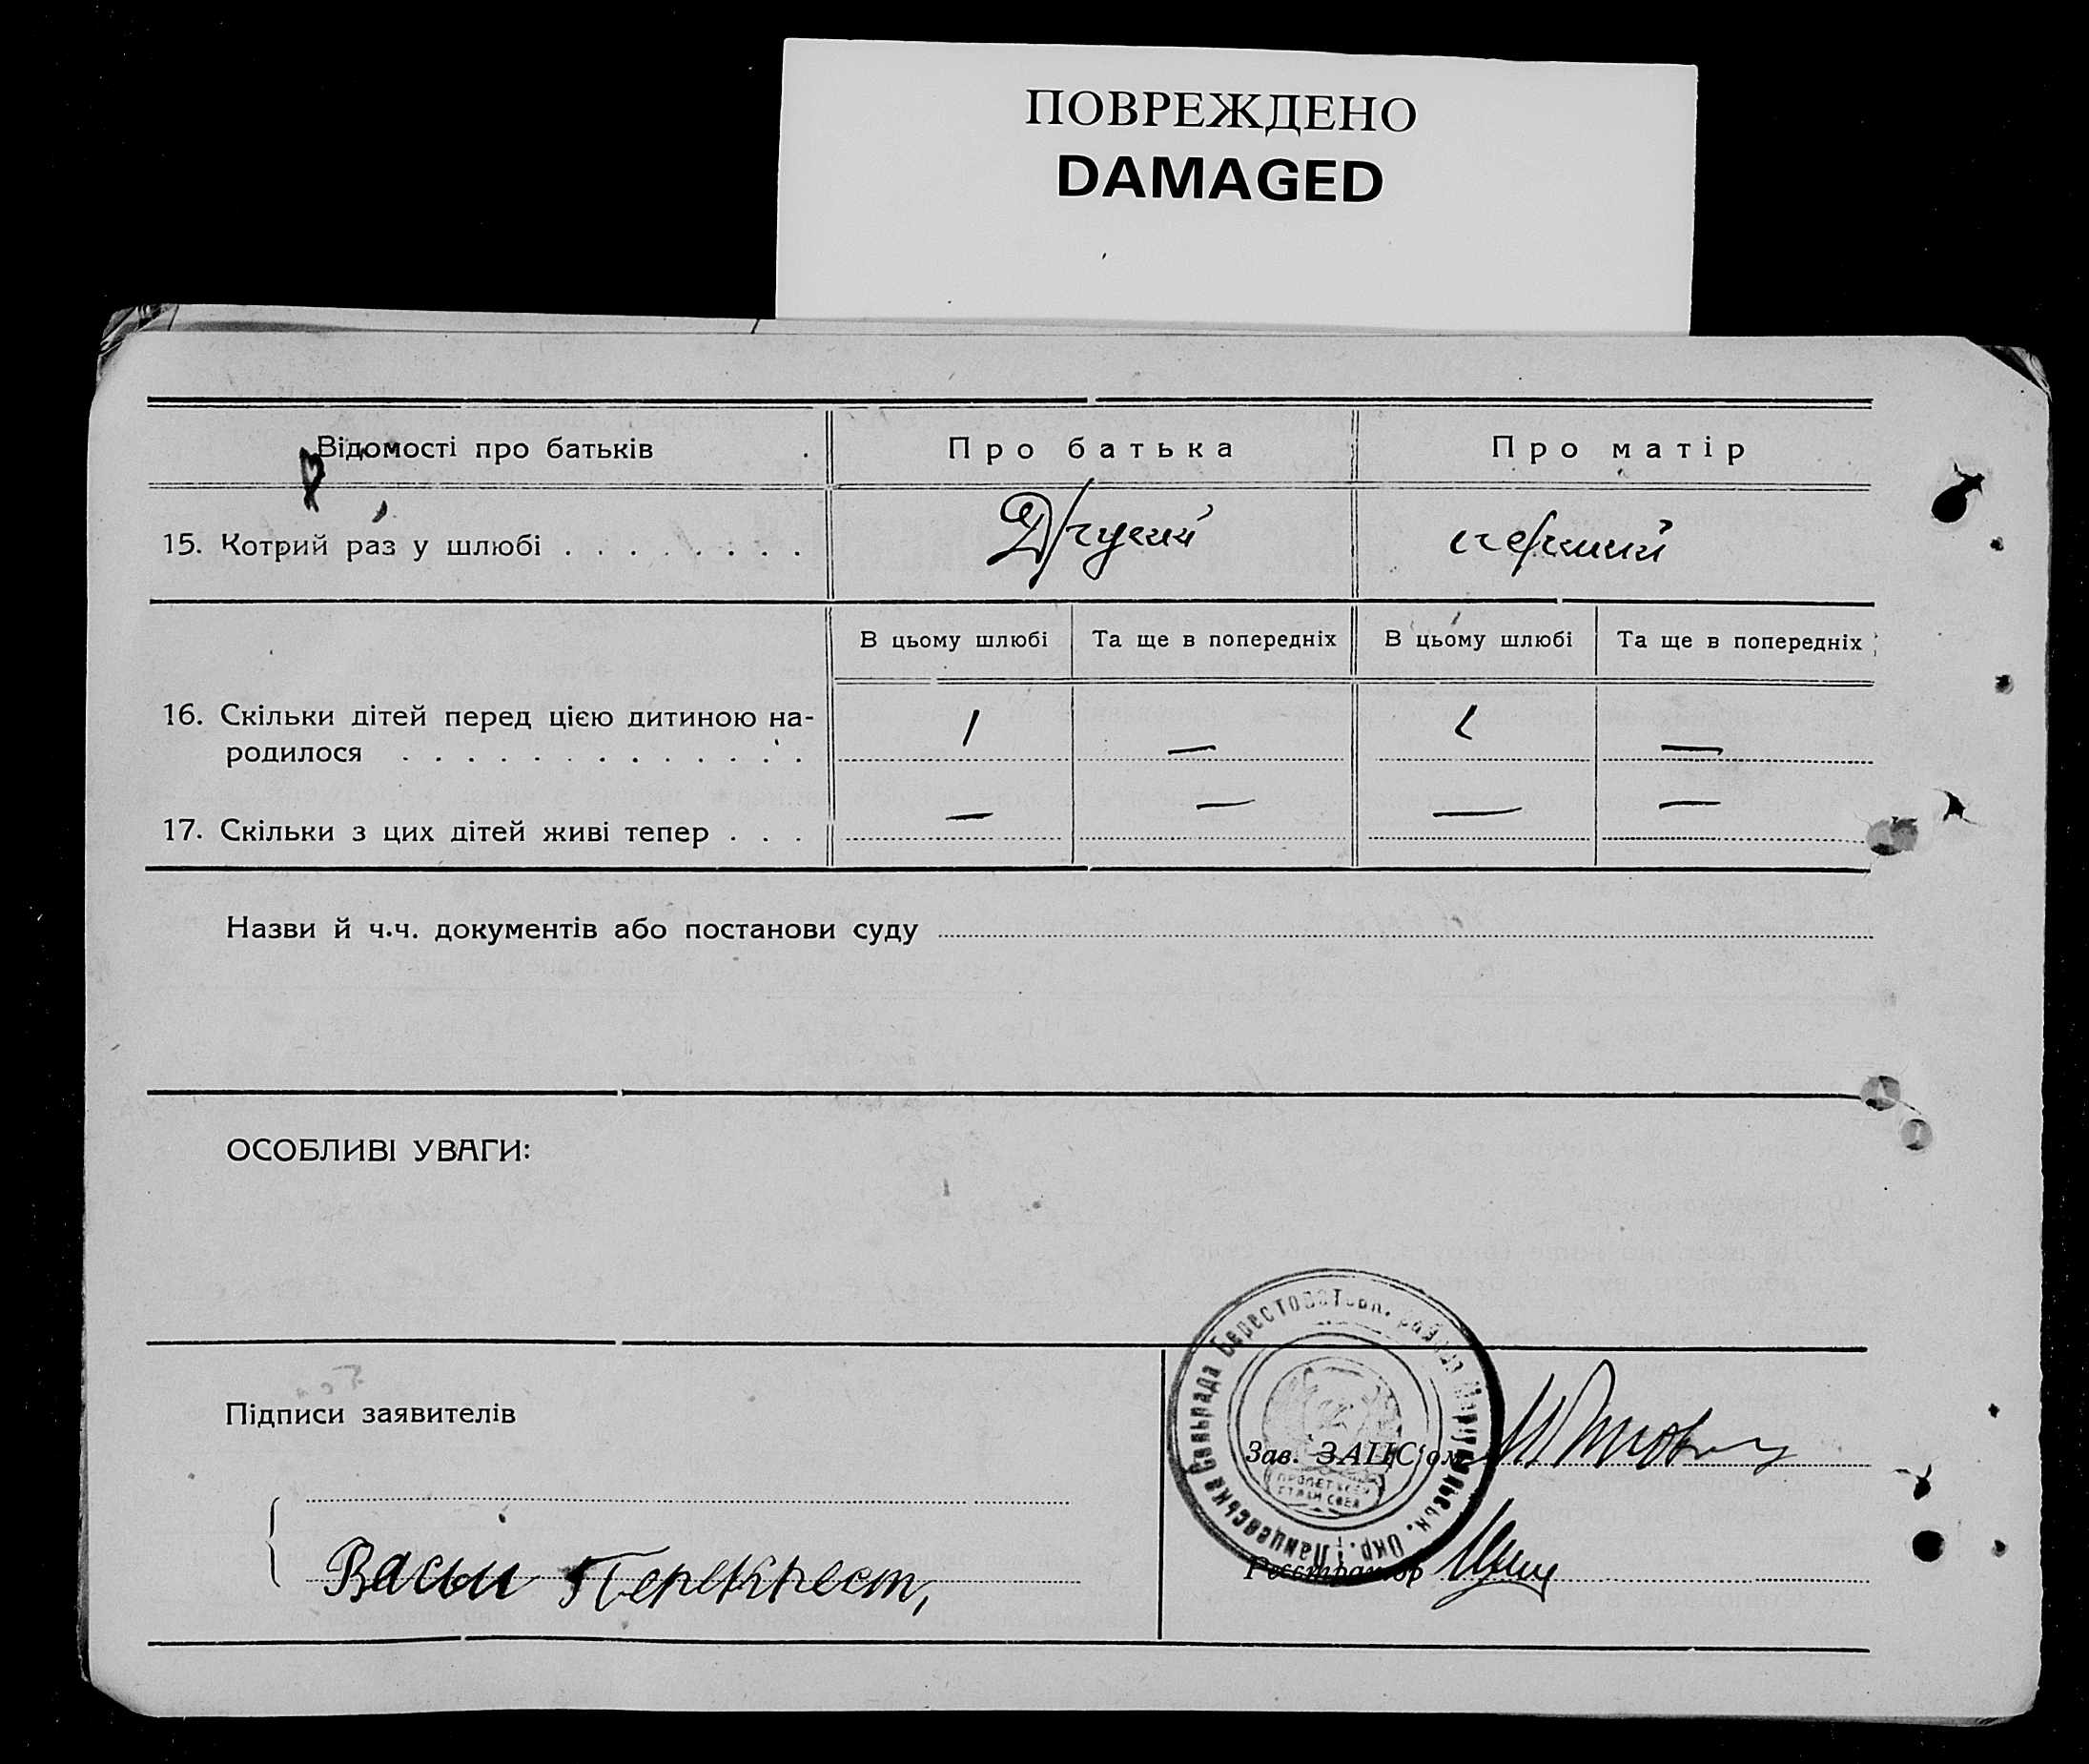 ПОВРЕЖДЕНО
DAMAGED
Відомості про батьків Про батька Про матір
15. Котрий раз у шлюбі . . . . . . . . Другий перший
В цьому шлюбі Та ще в попередніх В цьому шлюбі Та ще в попередніх
16. Скільки дітей перед цією дитиною на-
родилося . . . . . . . . . . . . . 1 — 1 —
17. Скільки з цих дітей живі тепер . . . — — — —
Назви й ч.ч. документів або постанови суду
ОСОБЛИВІ УВАГИ:
Підписи заявителів
Зав. ЗАЦС'ом
Василь Перехрест,
Реєстратор
Сильрада Берестоватськ. району Маріупольськ. Окр.